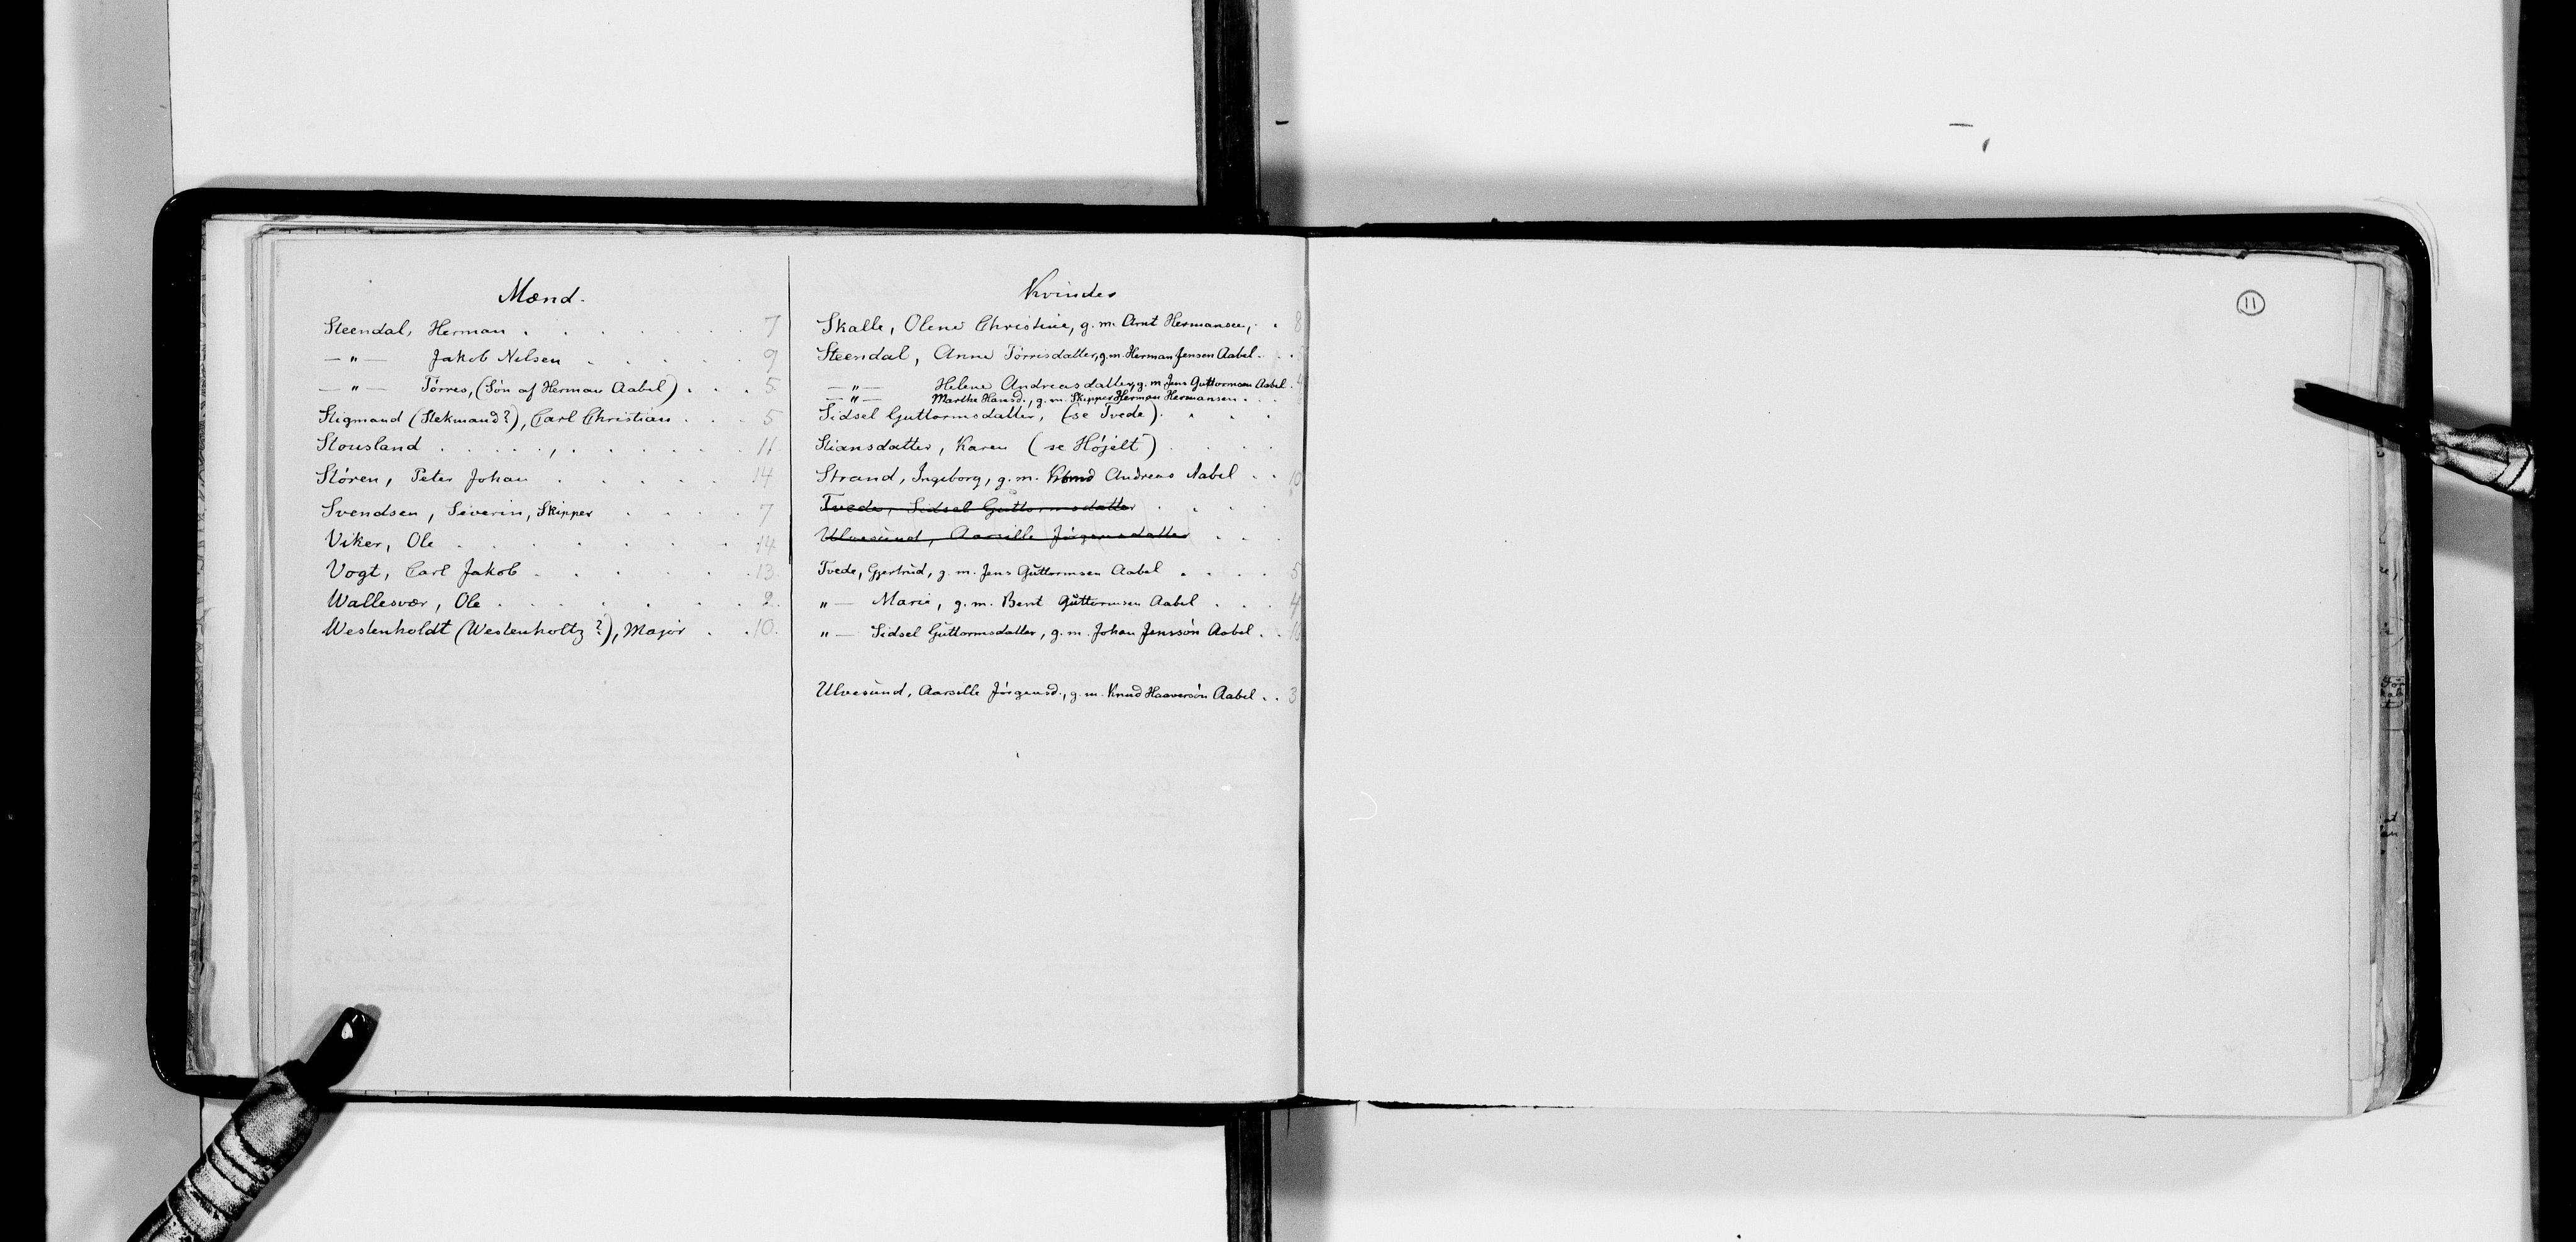 Mænd.
Steendal, Herman . . . . . . . 7
— " — Jakob Nilsen . . . . . 9
— " — Törres, (Sön af Herman Aabel) . . . 5
Stigmand (Stekmand?), Carl Christian . . . 5
Stousland . . . . , . . . . . . 11
Stören, Peter Johan . . . . . . 14
Svendsen, Severin, Skipper . . . . 7
Viker, Ole . . . . . . . 14
Vogt, Carl Jakob . . . . . . 13
Wallesvær, Ole . . . . . . . 2
Westenholdt (Westenholtz?), Major . . 10
Kvinder
Skalle, Olene Christine, g. m. Arnt Hermansen, . . 8
Steendal, Anne Törrisdatter, g. m. Herman Jensen Aabel . . .
— " — Helene Andreasdatter, g. m. Jens Guttormsen Aabel . 4
— " — Marthe Hansd., g. m. Skipper Herman Hermansen . . .
Sidsel Guttormsdatter, (se Tvede) . . . .
Stiansdatter, Karen (se Höjelt) . . . .
Strand, Ingeborg, g. m. Knud Andreas Aabel . . 10
Tvede, Sidsel Guttormsdatter . . . .
Ulvesund, Aarsille Jörgensdatter . . .
Tvede, Gjertrud, g. m. Jens Guttormsen Aabel . . . . 5
" — Marie, g. m. Bent Guttormsen Aabel . . . 4
" — Sidsel Guttormsdatter, g. m. Johan Jenssön Aabel . . 10
Ulvesund, Aarsille Jörgensd., g. m. Knud Haaversön Aabel . . 3
11